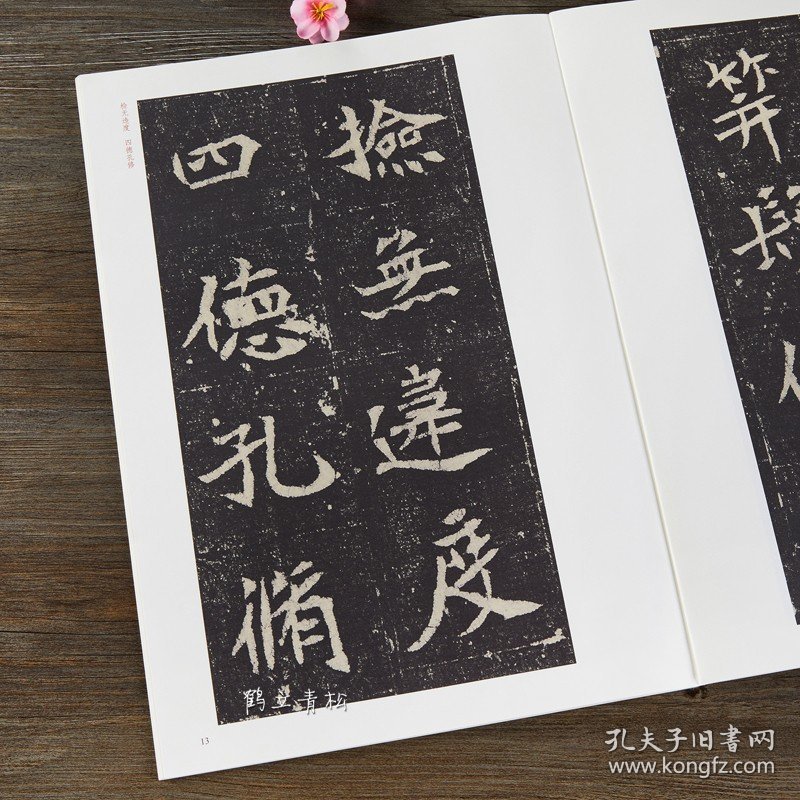 撿無違度
四德孔脩
检无违度 四德孔修
13
鹤立青松
孔夫子旧書网
www.kongfz.com